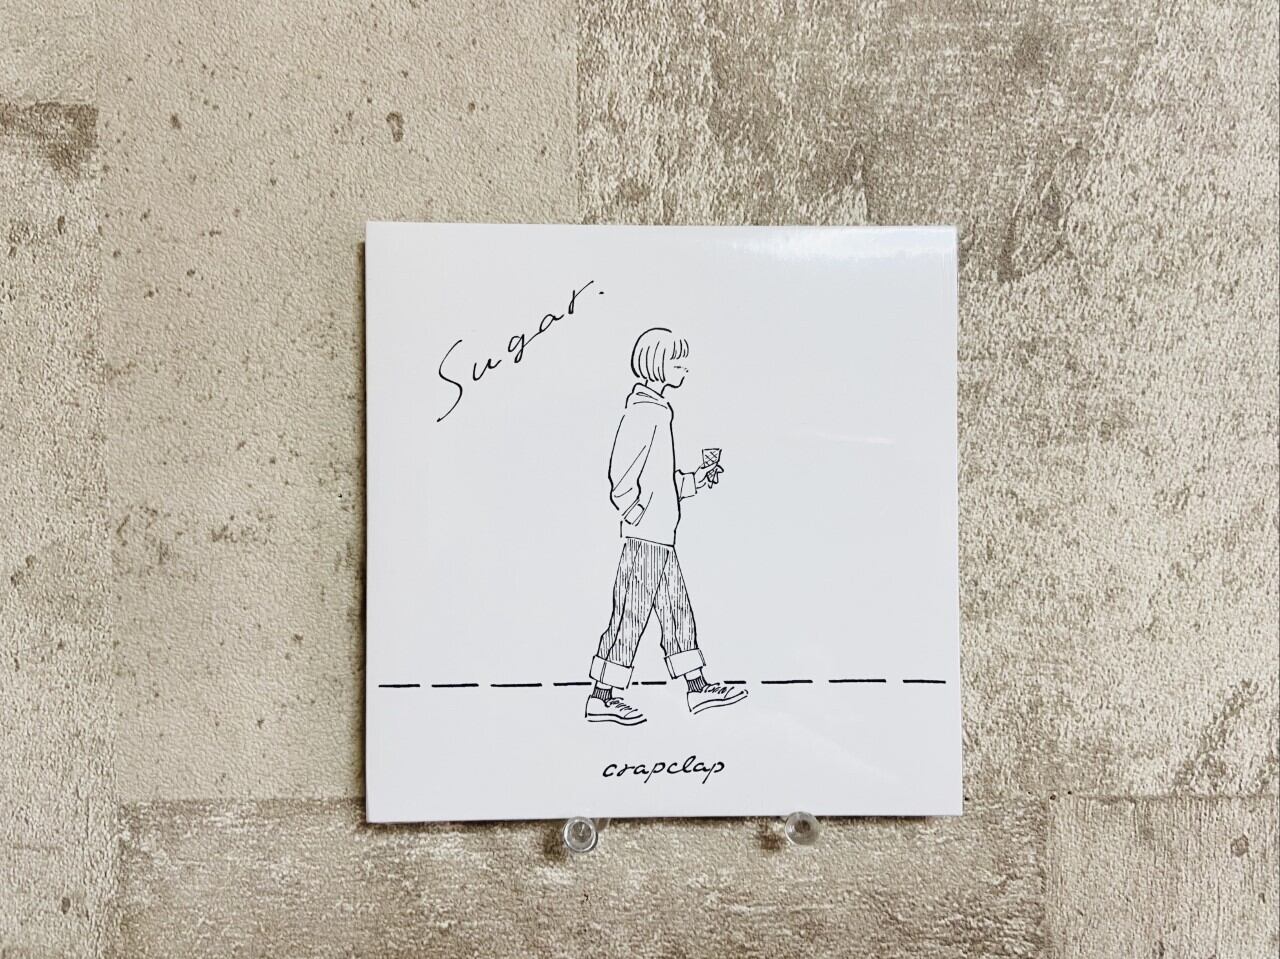 Sugar.
crapclap